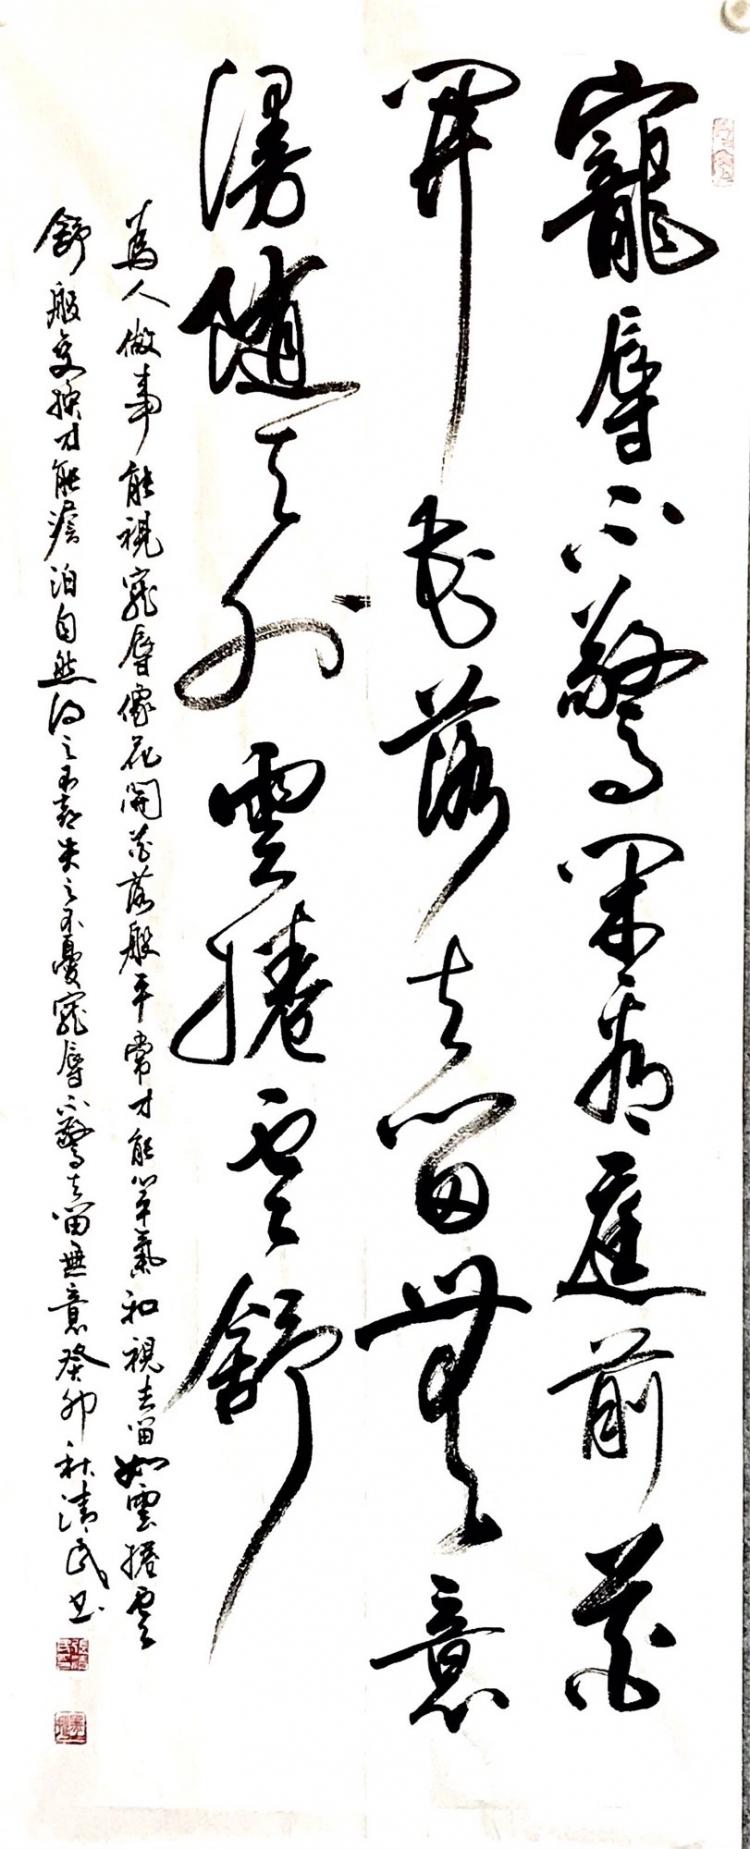 寵辱不驚閑看庭前花
開花落去留無意
漫隨天外雲捲雲舒
為人做事能視寵辱像花開花落般平常才能笑氣和視去留如雲捲雲
舒般变换才能淡泊自然得之不喜失之不憂寵辱不驚去留無意癸卯秋清民书